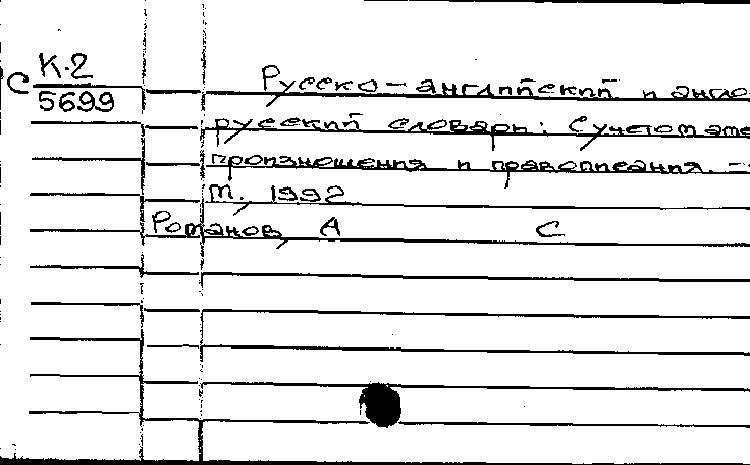 С К.2
5699
Русско-английский и англо
русский словарь: С учетом аме
произношения и правописания. -
М., 1992
Романов, А С